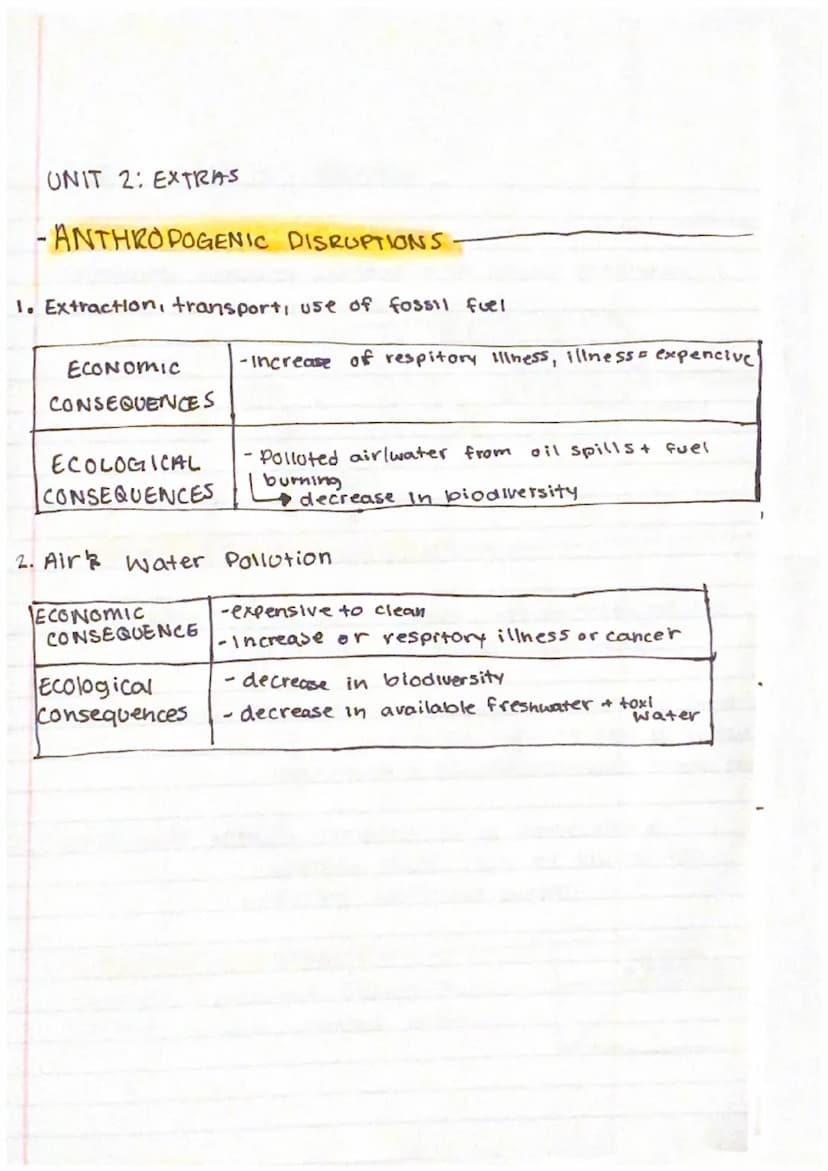 UNIT 2: EXTRAS
- ANTHROPOGENIC DISRUPTIONS
1. Extraction, transport, use of fossil fuel
ECONOMIC
CONSEQUENCES
- Increase of respitory illness, illness = expencive
ECOLOGICAL
CONSEQUENCES
- Polloted air/water from oil spills + fuel
burning
→ decrease in biodiversity
2. Air & Water Pollution
ECONOMIC
CONSEQUENCE
- expensive to clean
- increase or respitory illness or cancer
Ecological
Consequences
- decrease in biodiversity
- decrease in available freshwater + toxi
water